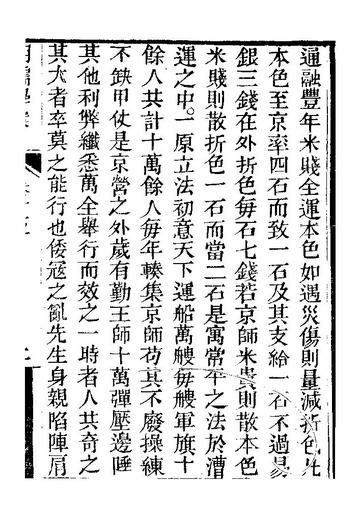 通融豐年米賤全運本色如遇災傷則量減折色凡
本色至京率四石而致一石及其支給一石不過易
銀三錢在外折色每石七錢若京師米貴則散本色
米賤則散折色一石而當二石是寓常平之法於漕
運之中。一原立法初意天下運船萬艘每艘軍旗十
餘人共計十萬餘人每年輳集京師苟其不廢操練
不缺甲仗是京營之外歲有勤王師十萬彈壓邊陲
其他利弊纖悉萬全舉行而效之一時者人共奇之
其大者率莫之能行也倭寇之亂先生身親陷陣肩